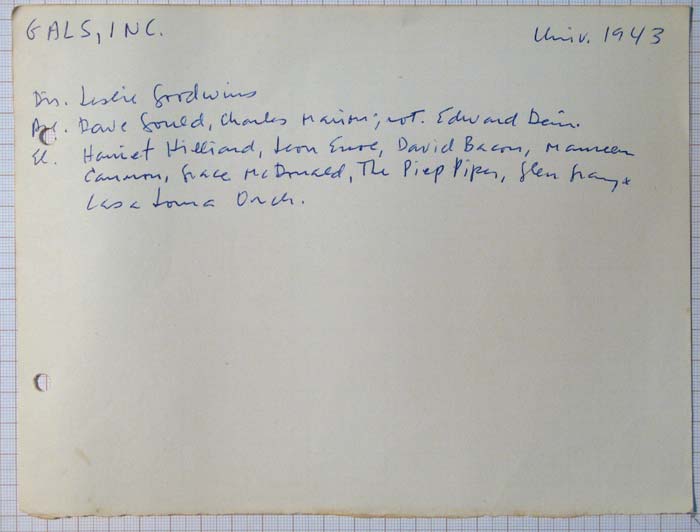 GALS, INC. Univ. 1943
Dir. Leslie Goodwins
Dave Gould, Charles Marion; not. Edward Dein.
El. Harriet Hilliard, Leon Errol, David Bacon, Maureen
Cannon, Grace McDonald, The Pied Piper, Glen Gray +
Casa Loma Orch.